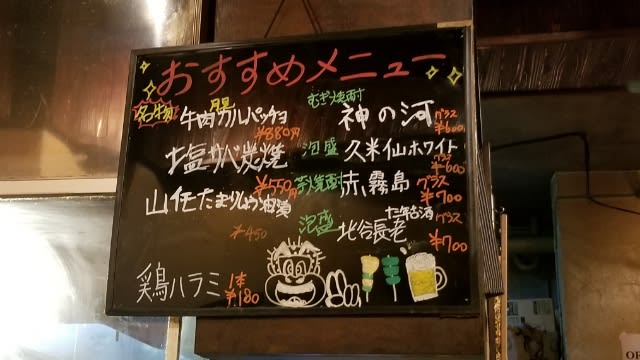 おすすめメニュー
名物
牛肉カルパッチョ
¥880円
塩サバ炭焼
¥550円
山任たまりじょう油漬
¥450
鶏ハラミ 1本
¥180
むぎ焼酎
神の河 グラス
¥600
泡盛 久米仙ホワイト
グラス
¥600
芋焼酎 赤霧島 グラス
¥700
泡盛 北谷長老 十二年古酒 グラス
¥700